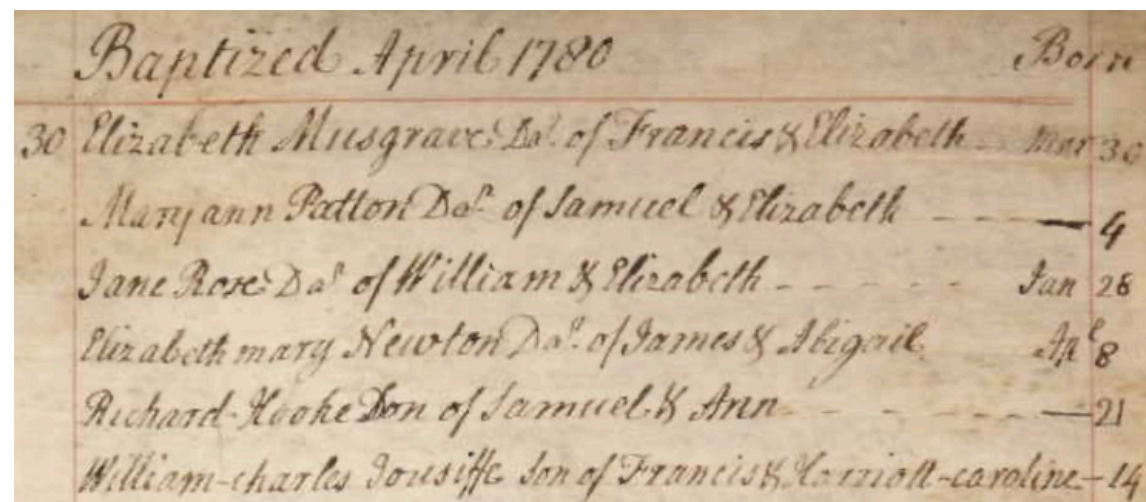 Baptized April 1780 Born
30 Elizabeth Musgrave Dar. of Francis & Elizabeth Mar 30
Maryann Patton Dar. of Samuel & Elizabeth - - - — 4
Jane Rose Dar of William & Elizabeth - - - - - Jan 28
Elizabeth mary Newton Dar. of James & Abigail Apl 8
Richard-Hooke Son of Samuel & Ann - - - - - — 21
William-charles Jousiffe Son of Francis & Harriott-caroline - 14